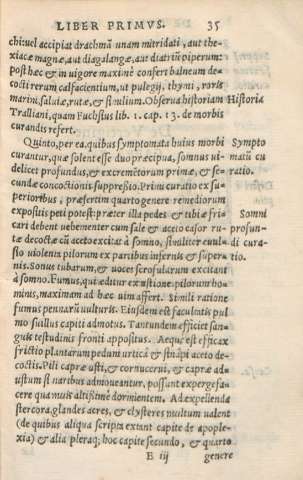 LIBER PRIMVS. 35
chi: vel accipiat drachmā unam mitridati, aut the-
riacæ magnæ, aut diagalangæ, aut diatriū piperum:
post hæc & in uigore maximè confert balneum de-
cocti rerum calfacientium, ut pulegij, thymi, roris
marini, saluiæ, rutæ, & similium. Obserua historiam Historia
Tralliani, quam Fuchsius lib. 1. cap. 13. de morbis
curandis refert.
Quinto, per ea, quibus symptomata huius morbi Sympto
curantur, quæ solent esse duo præcipua, somnus ui- matū cu
delicet profundus, & excremētorum primæ, & se- ratio.
cundæ concoctionis suppressio. Primi curatio ex su-
perioribus, præsertim quarto genere remediorum
expositis peti potest: præter illa pedes & tibiæ fri- Somni
cari debent uehementer cum sale & aceto ca or ru- profun-
tæ decoctæ cū aceto excitat à somno, similiter euul- di cura-
sio uiolenta pilorum ex partibus infernis & supere- tio.
nis. Sonus tubarum, & uoces scrofularum excitant
à somno. Fumus, qui æditur ex ustione pilorum ho-
minis, maximam ad hæc uim affert. Simili ratione
fumus pennarū uulturis. Eiusdem est facultatis pul
mo suillus capiti admotus. Tantundem efficit san-
guis testudinis fronti appositus. Aequè est efficax
frictio plantarum pedum urtica & sināpi aceto de-
coctis. Pili capræ usti, & cornu cerui, & capræ ad-
ustum si naribus admoueantur, possunt expergefa-
cere quamuis altissimè dormientem. Ad expellenda
stercora, glandes acres, & clysteres multum ualent
(de quibus aliqua scripta extant capite de apople-
xia) & alia pleraq; hoc capite secundo, & quarto
E iij genere